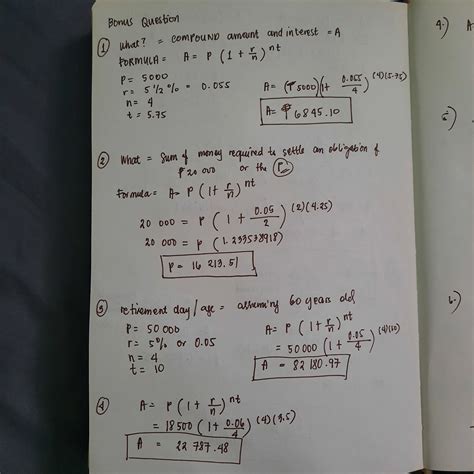 Bonus Question
① What? = COMPOUND amount and interest = A
FORMULA = A = P (1 + r/n)^nt
P = 5000
r = 5 1/2 % = 0.055
n = 4
t = 5.75
A = (₱5000)(1 + 0.055/4)^(4)(5.75)
A = ₱6845.10
② What = Sum of money required to settle an obligation of
₱20 000 or the P
Formula = A = P (1 + r/n)^nt
20 000 = P (1 + 0.05/2)^(2)(4.25)
20 000 = P (1.233532918)
P = 16 213.51
③ retirement day / age = assuming 60 years old
P = 50 000
r = 5% or 0.05
n = 4
t = 10
A = P (1 + r/n)^nt
= 50 000 (1 + 0.05/4)^(4)(10)
A = 82 180.97
④ A = P (1 + r/n)^nt
= 18500 (1 + 0.06/4)^(4)(3.5)
A = 22 787.48
4.) A
5.)
6.)